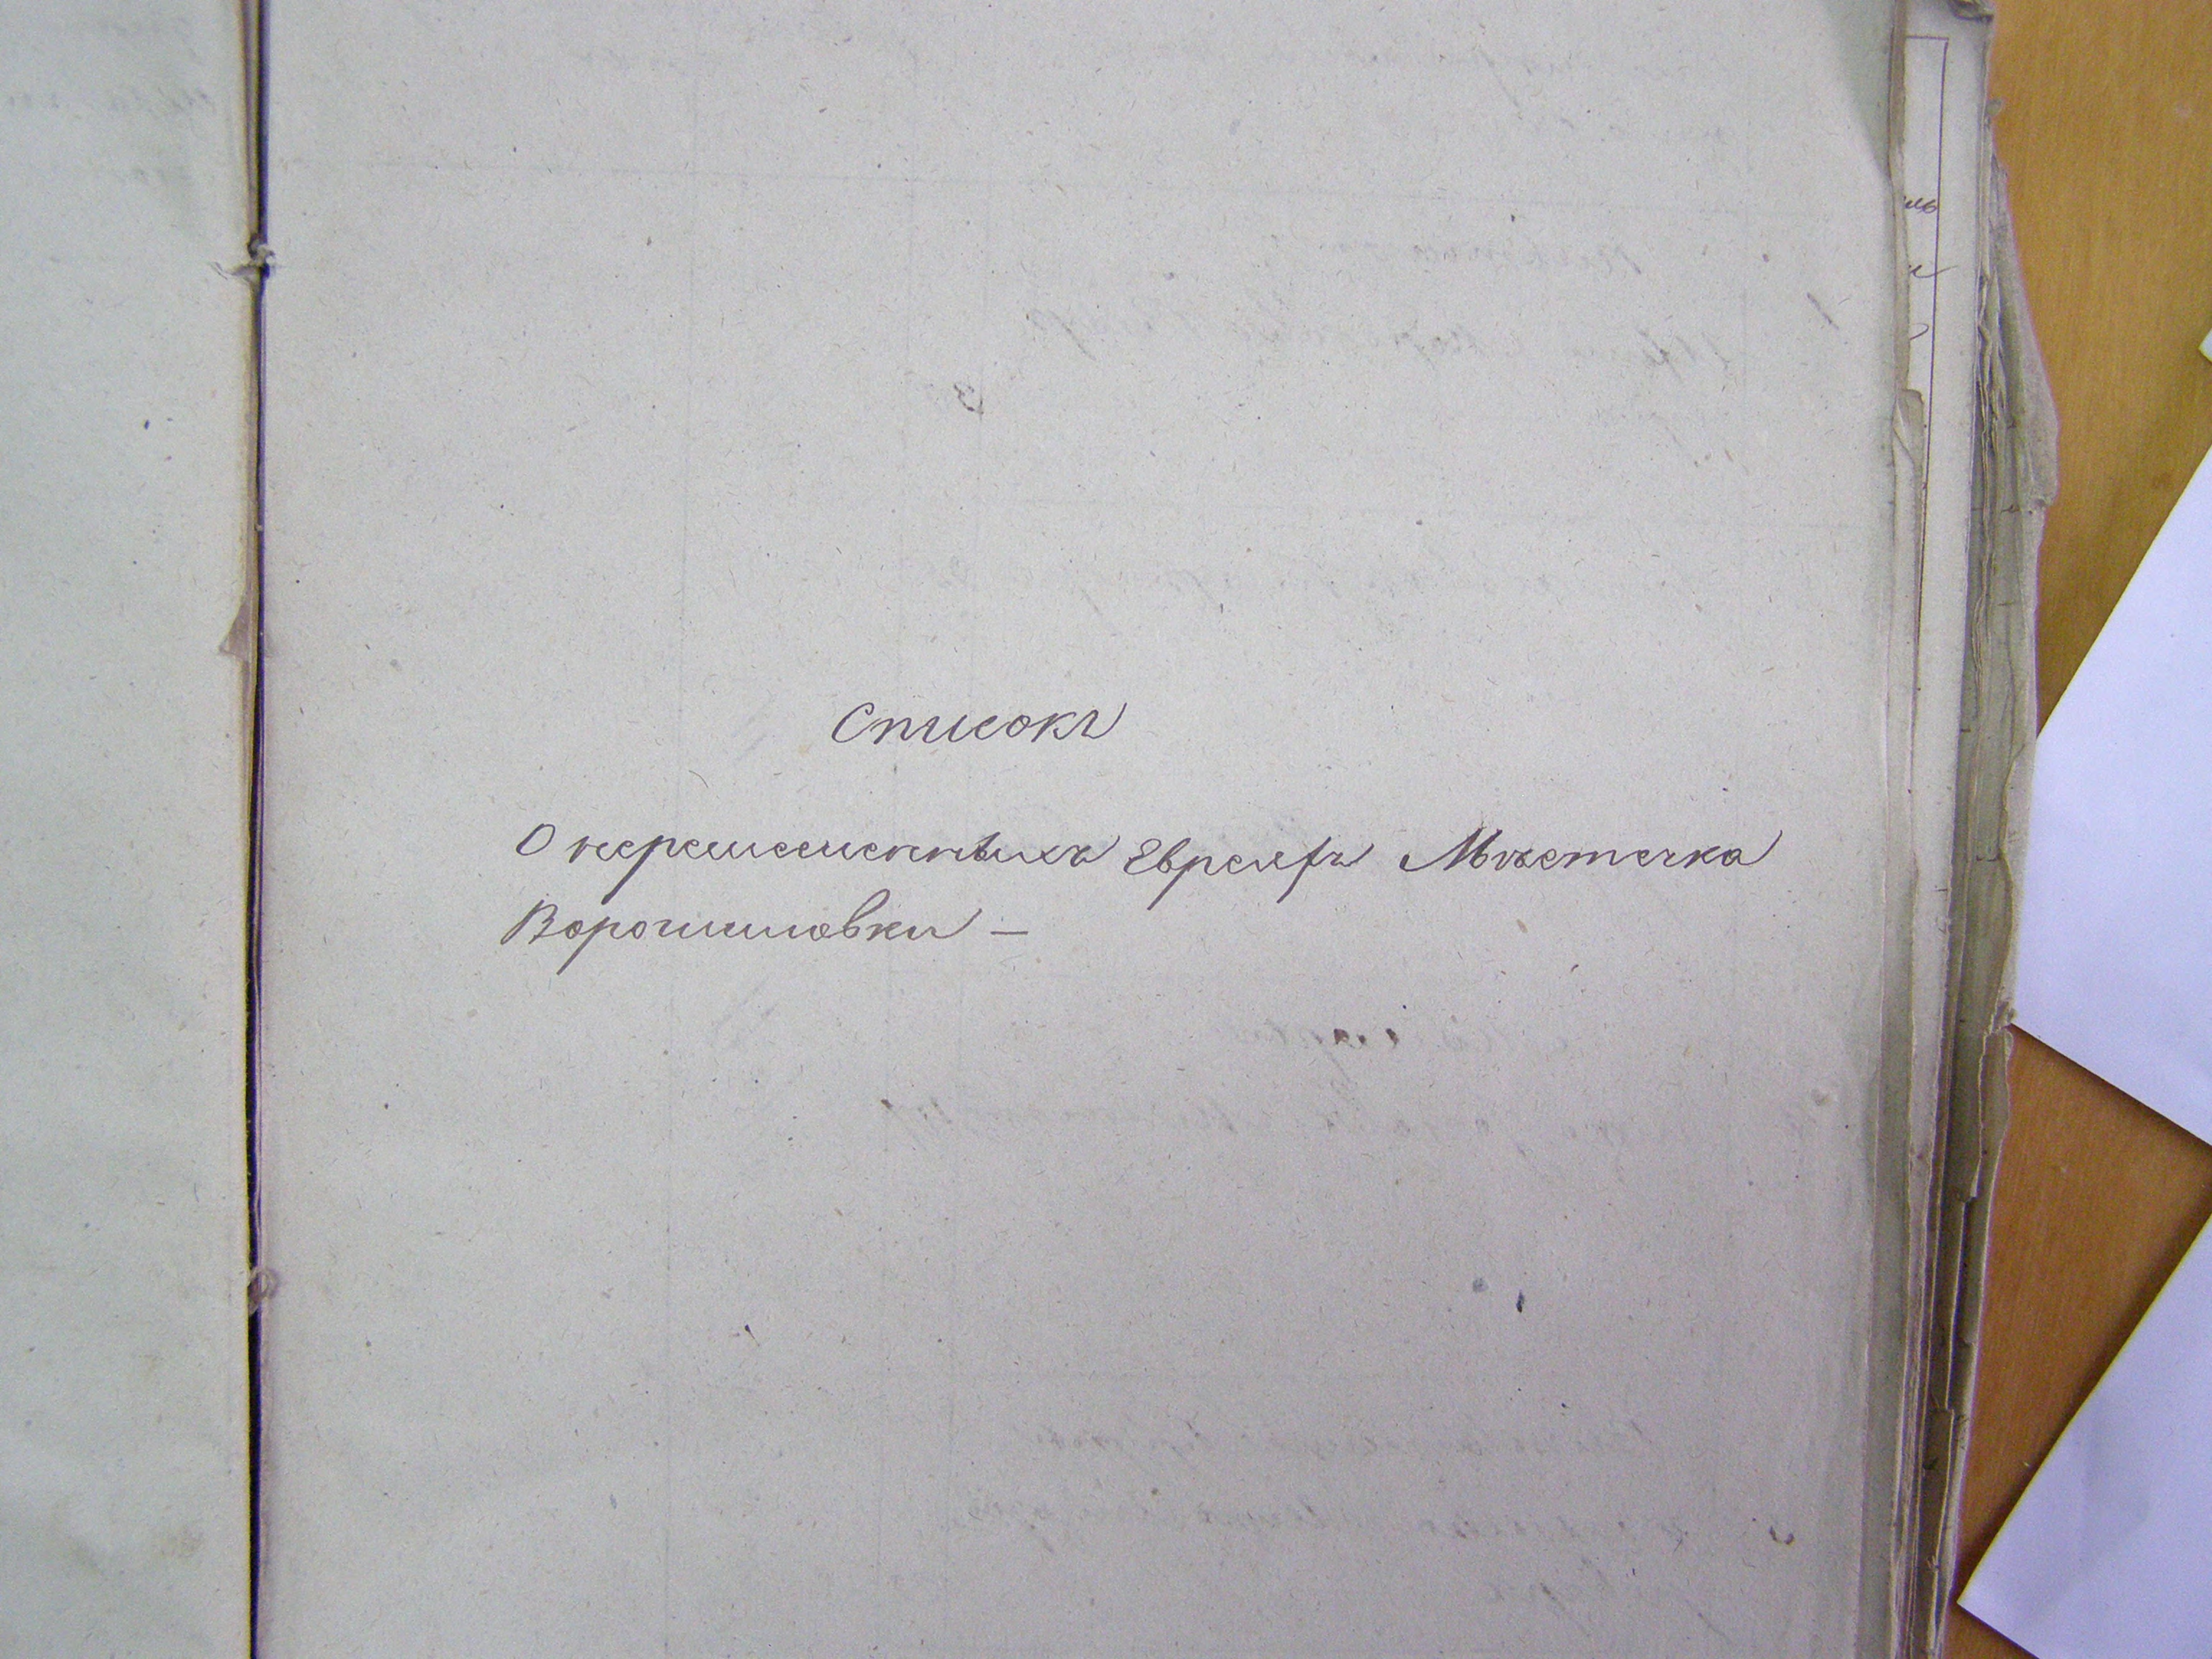 Списокъ
О перемѣненныхъ Евреяхъ Мѣстечка
Ворошиловки —